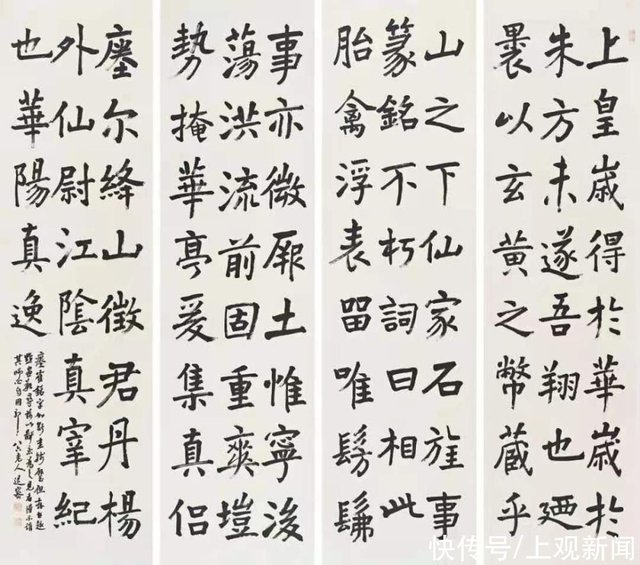 上皇歲得於華歲於
朱方未遂吾翔也迺
褁以玄黃之幣藏乎
山之下仙家石旌事
篆銘不朽詞曰相此
胎禽浮表留唯髣髴
事亦微厥土惟寧浚
蕩洪流前固重爽塏
勢掩華亭爰集真侶
瘞尔絳山徵君丹楊
外仙尉江陰真宰紀
也華陽真逸
快传号/上观新闻